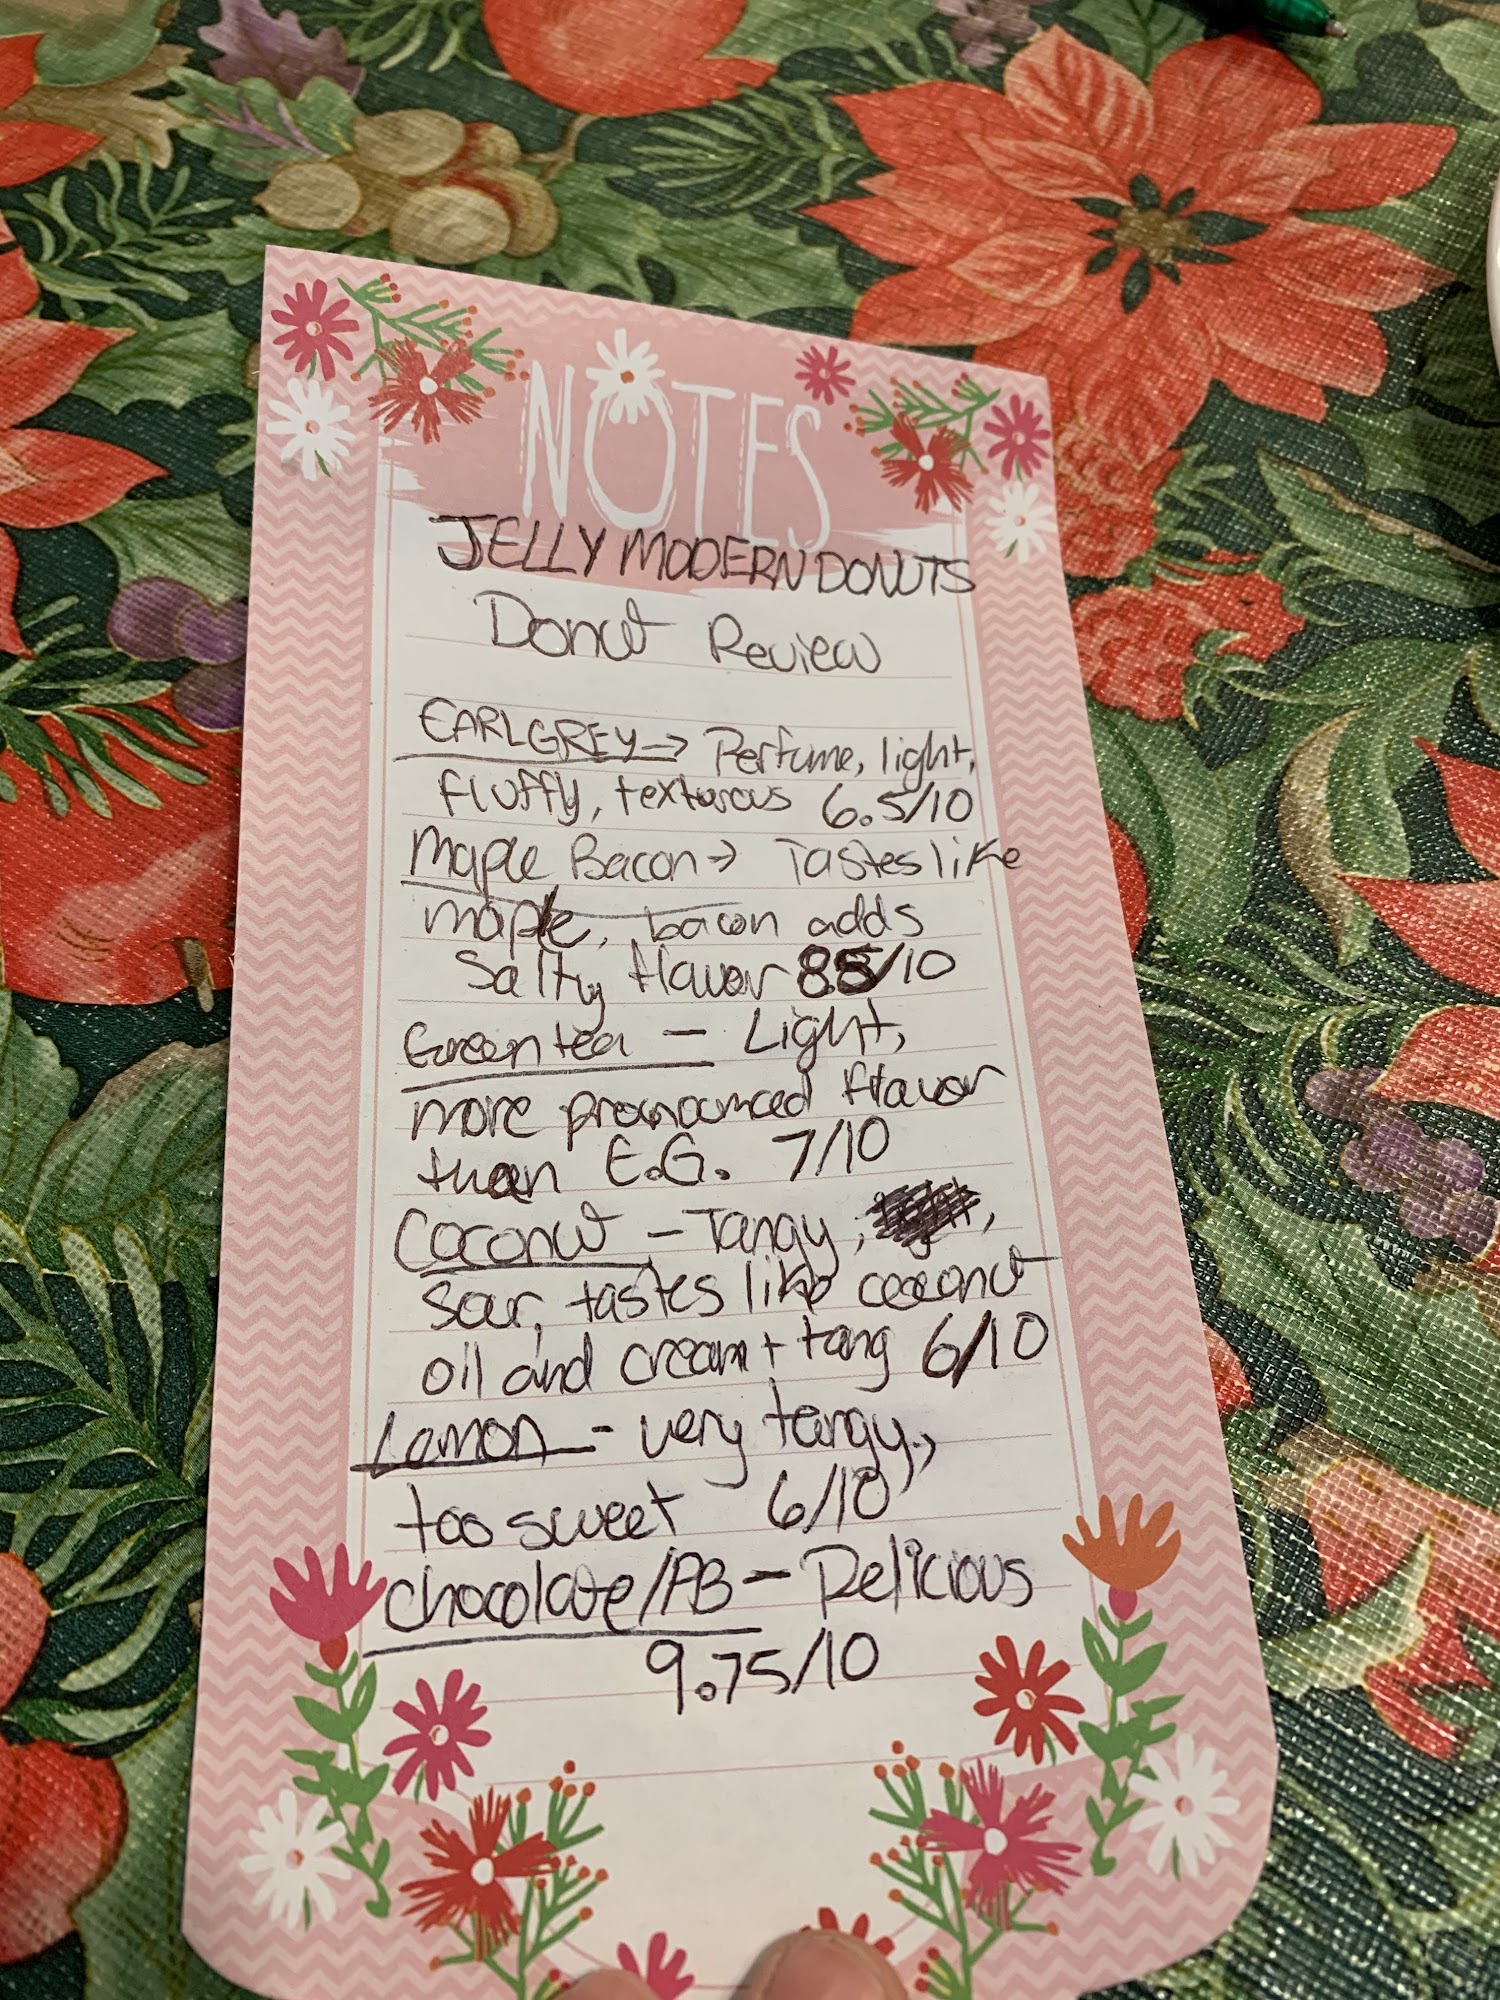 NOTES
JELLY MODERN DONUTS
Donut Review
EARL GREY → Perfume, light,
fluffy, texturous 6.5/10
Maple Bacon → Tastes like
maple, bacon adds
salty flavor /10
Green tea — Light,
more pronounced flavor
than E.G. 7/10
Coconut — Tangy,
sour, tastes like coconut
oil and cream + tang 6/10
Lemon - very tangy,
too sweet 6/10
chocolate/PB — Delicious
9.75/10